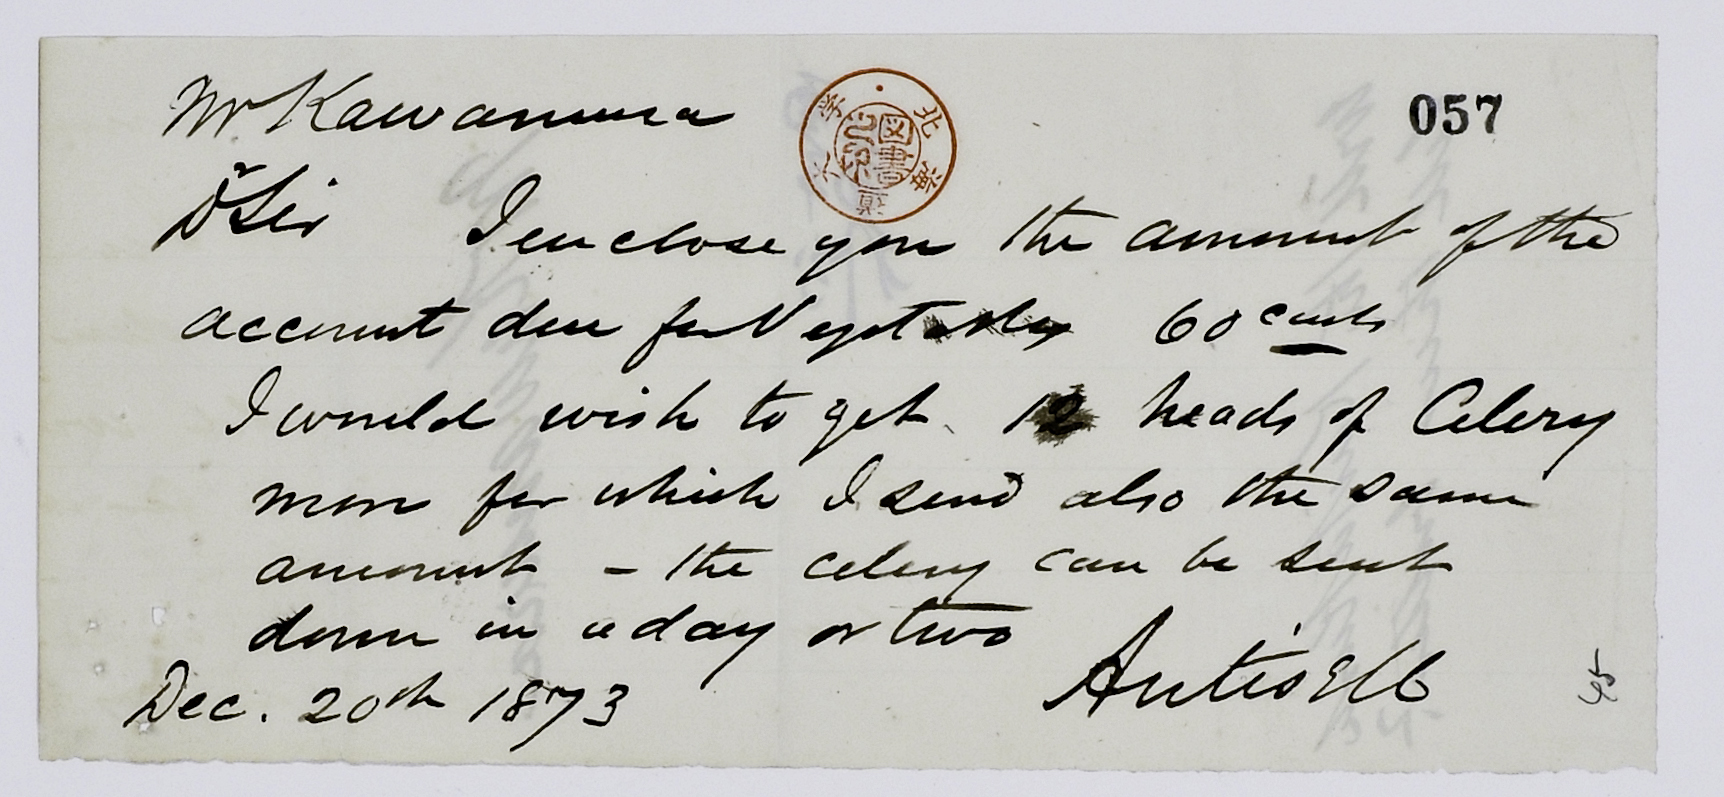 Mr Kawamura
057
北海道大学
図書
Dr Sir I enclose you the amount of the
account due for Vegetables 60 cents
I would wish to get 12 heads of Celery
more for which I send also the same
amount - the celery can be sent
down in a day or two
Antisell
Dec. 20th 1873